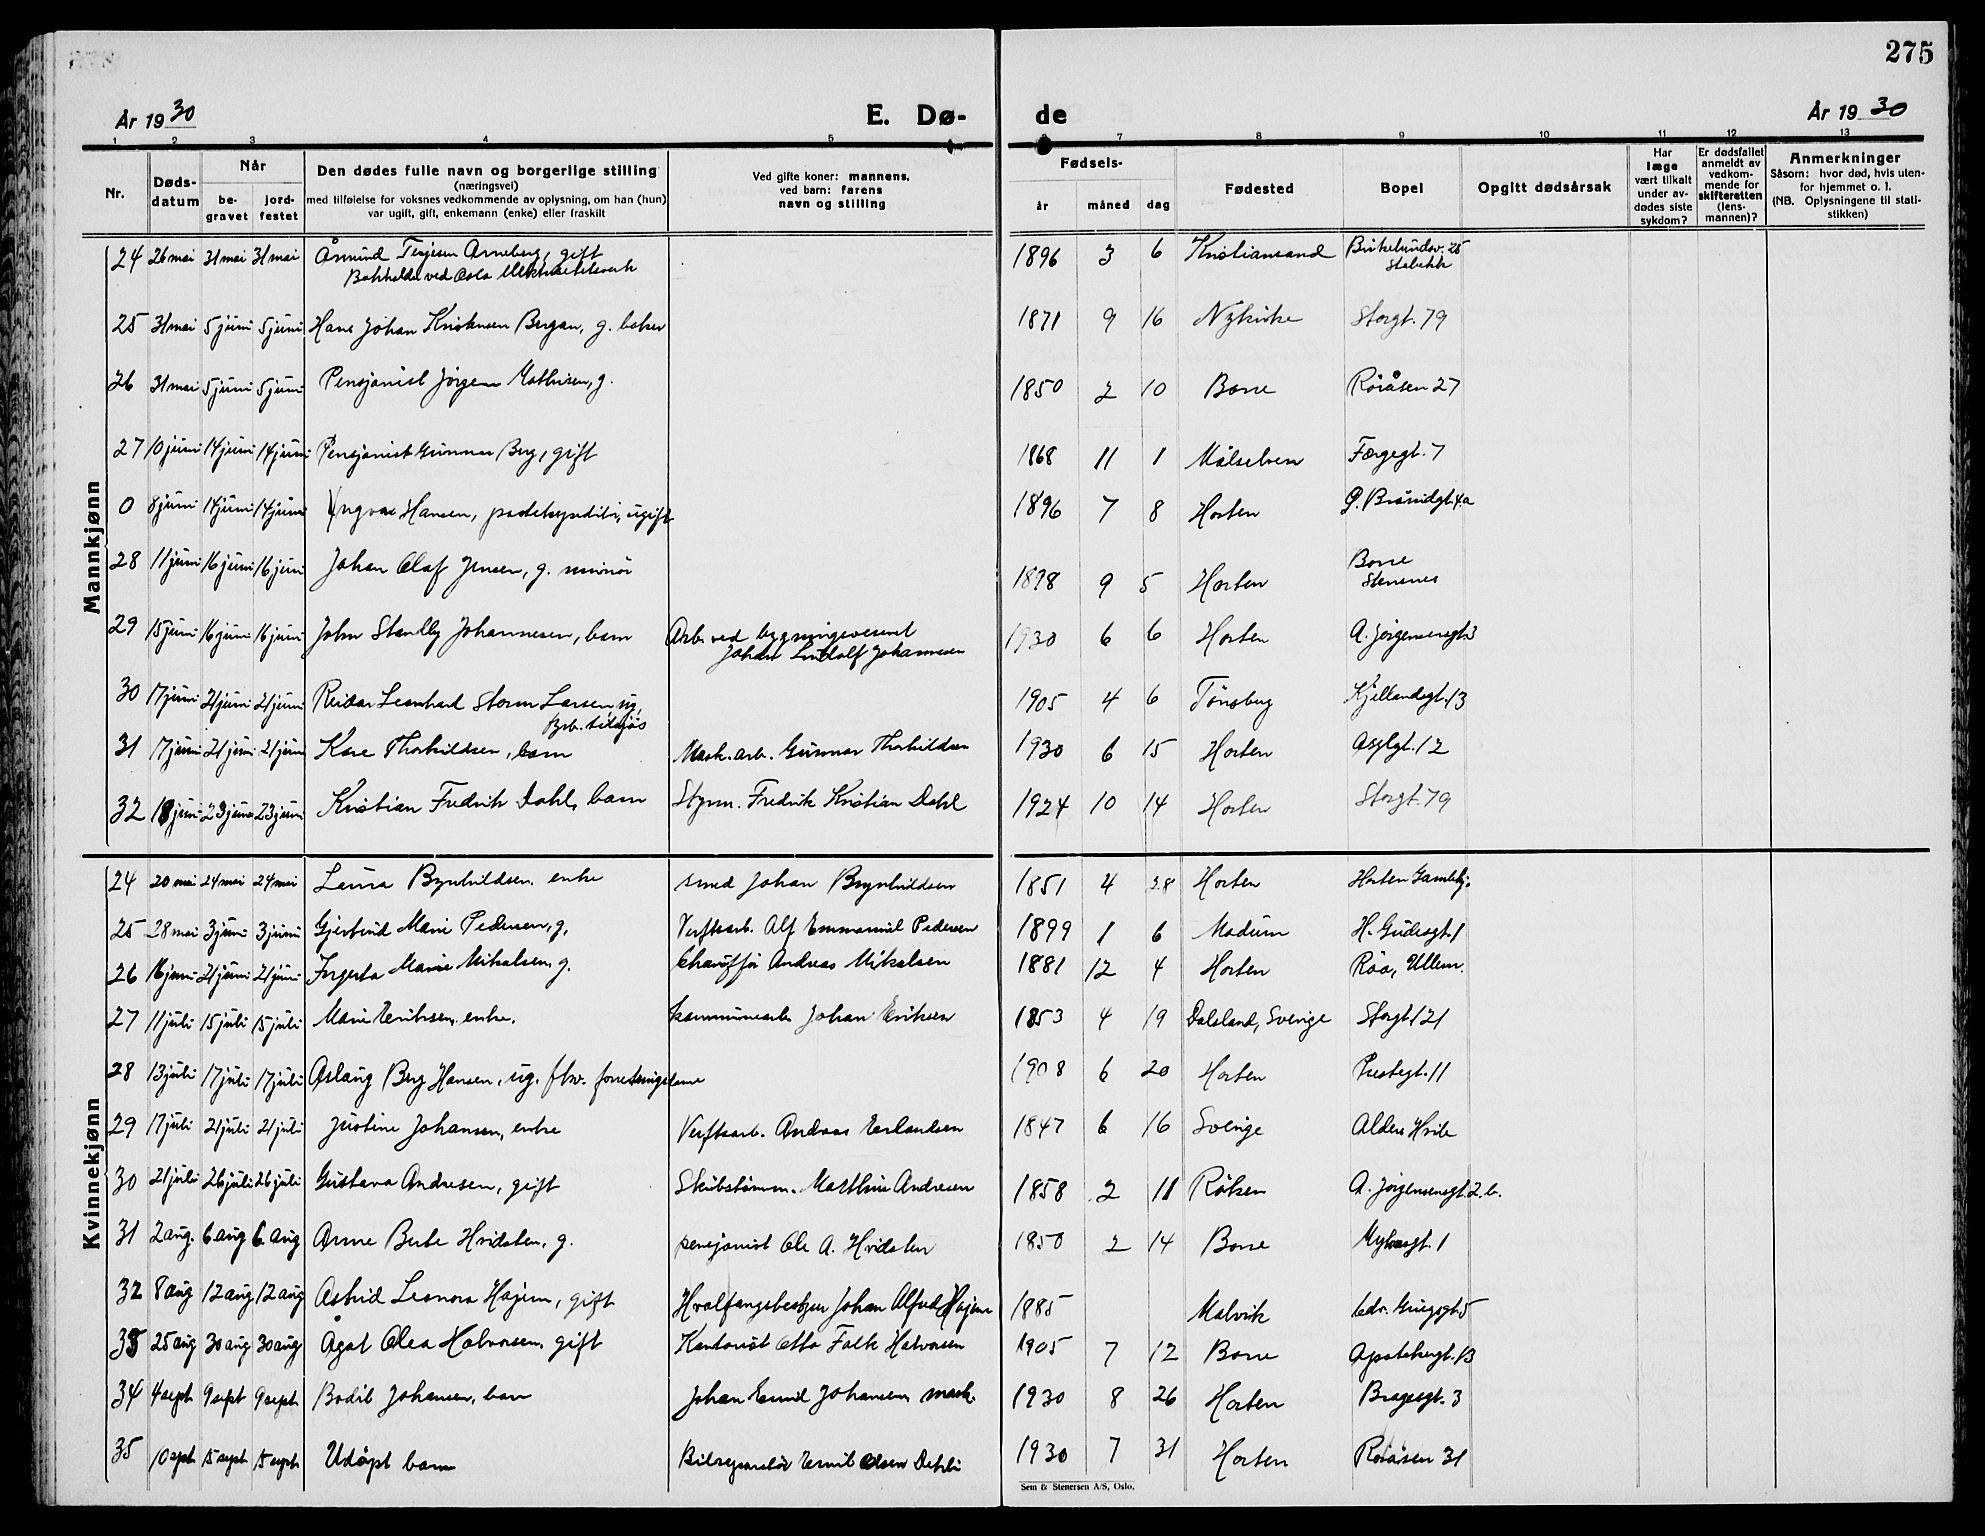 275
År 1930
E. Dø-
de
År 1930
1 2 3 4 5 6 7 8 9 10 11 12 13
Nr.
Døds-
datum
Når
be-
gravet
jord-
festet
Den dødes fulle navn og borgerlige stilling
(næringsvei)
med tilføielse for voksnes vedkommende av oplysning, om han (hun)
var ugift, gift, enkemann (enke) eller fraskilt
Ved gifte koner: mannens,
ved barn: farens
navn og stilling
Fødsels-
år måned dag
Fødested
Bopel
Opgitt dødsårsak
Har
læge
vært tilkalt
under av-
dødes siste
sykdom?
Er dødsfallet
anmeldt av
vedkom-
mende for
skifteretten
(lens-
mannen)?
Anmerkninger
Såsom: hvor død, hvis uten-
for hjemmet o. l.
(NB. Oplysningene til stati-
stikken)
Mannkjønn
24 26 mai 31 mai 31 mai Åsmund Terjesen Arneberg, gift 1896 3 6 Kristiansand Birkelundsv. 25
Bokholder ved Oslo Elektrisitetsverk Stabekk
25 31 mai 5 juni 5 juni Hans Johan Kristensen Bergan, g. baker 1871 9 16 Nykirke Storgt. 79
26 31 mai 5 juni 5 juni Pensjonist Jørgen Mathisen, g. 1850 2 10 Borre Røråsen 27
27 10 juni 14 juni 14 juni Pensjonist Gunnar Berg, gift 1868 11 1 Målselven Færgegt. 7
0 8 juni 14 juni 14 juni Yngvar Hansen, postekspeditør, ugift 1896 7 8 Horten
28 11 juni 16 juni 16 juni Johan Olaf Jensen, g. 1898 9 5 Horten Borre
Stensnes
29 15 juni 16 juni 16 juni John Standly Johannesen, barn Arb. ved bygningsvesenet 1930 6 6 Horten A. Jørgensensgt 3
Johan Lindolf Johannesen
30 17 juni 21 juni 21 juni Reidar Leonhard Storm Larsen ug, 1905 4 6 Tønsberg Kjellandsgt. 13
31 17 juni 21 juni 21 juni Kåre Thorkildsen, barn Mask. arb. Gunnar Thorkildsen 1930 6 15 Horten Asylgt. 12
32 18 juni 23 juni 23 juni Kristian Fredrik Dahl, barn Styrm. Fredrik Kristian Dahl 1924 10 14 Horten Storgt. 79
Kvinnekjønn
24 20 mai 24 mai 24 mai Laura Brynhildsen, enke smed Johan Brynhildsen 1851 4 28 Horten Horten Gamlehj.
25 28 mai 3 juni 3 juni Gjertrud Marie Pedersen, g. Verftsarb. Alf Emmanuel Pedersen 1899 1 6 Modum H. Gudesgt. 1
26 16 juni 21 juni 21 juni Ingerta Marie Mikalsen, g. Chauffør Andreas Mikalsen 1881 12 4 Horten Røa, Ullern.
27 11 juli 15 juli 15 juli Marie Eriksen, enke. kommunearb. Johan Eriksen 1853 4 19 Dalsland, Sverige Storgt. 121
28 13 juli 17 juli 17 juli Aslaug Berg Hansen, ug. fhv. forretningsdame 1908 6 20 Horten Prestegt. 11
29 17 juli 21 juli 21 juli Justine Johansen, enke Verftsarb. Andreas Erlandsen 1847 6 16 Sverige Alders Hvile
30 21 juli 26 juli 26 juli Gustava Andresen, gift Skibstømm. Matthius Andresen 1858 2 11 Røken A. Jørgensensgt 2. b.
31 2 aug. 6 aug 6. aug Anne Berte Hvidsten, g. pensjonist Ole A. Hvidsten 1850 2 14 Borre Myhresgt. 1
32 8 aug 12 aug 12 aug Astrid Leonora Hojem, gift Hvalfangstbestyrer Johan Alfred Hojem 1885 Malvik Edv. Griegsgt. 5
33 25 aug 30 aug 30 aug Ågot Olea Halvorsen, gift Kontorist Otto Falk Halvorsen 1905 7 12 Borre Apotekergt. 13
34 4 sept. 9 sept 9 sept. Bodil Johansen, barn Johan Emil Johansen, mask. 1930 8 26 Horten Bragesgt. 3
35 10 sept. 15 sept. 15 sept. Udøpt barn Bilreparatør Emil Olsen Dehli 1930 7 31 Horten Røråsen 31
Sem & Stenersen A/S, Oslo.